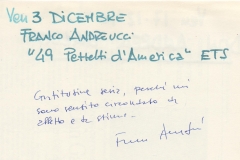 Ven 3 DICEMBRE
FRANCO ANDREUCCI
"49 Pettelti d'America" ETS
serie, perché mi
sono sentito circondato di
affetto e di stima.